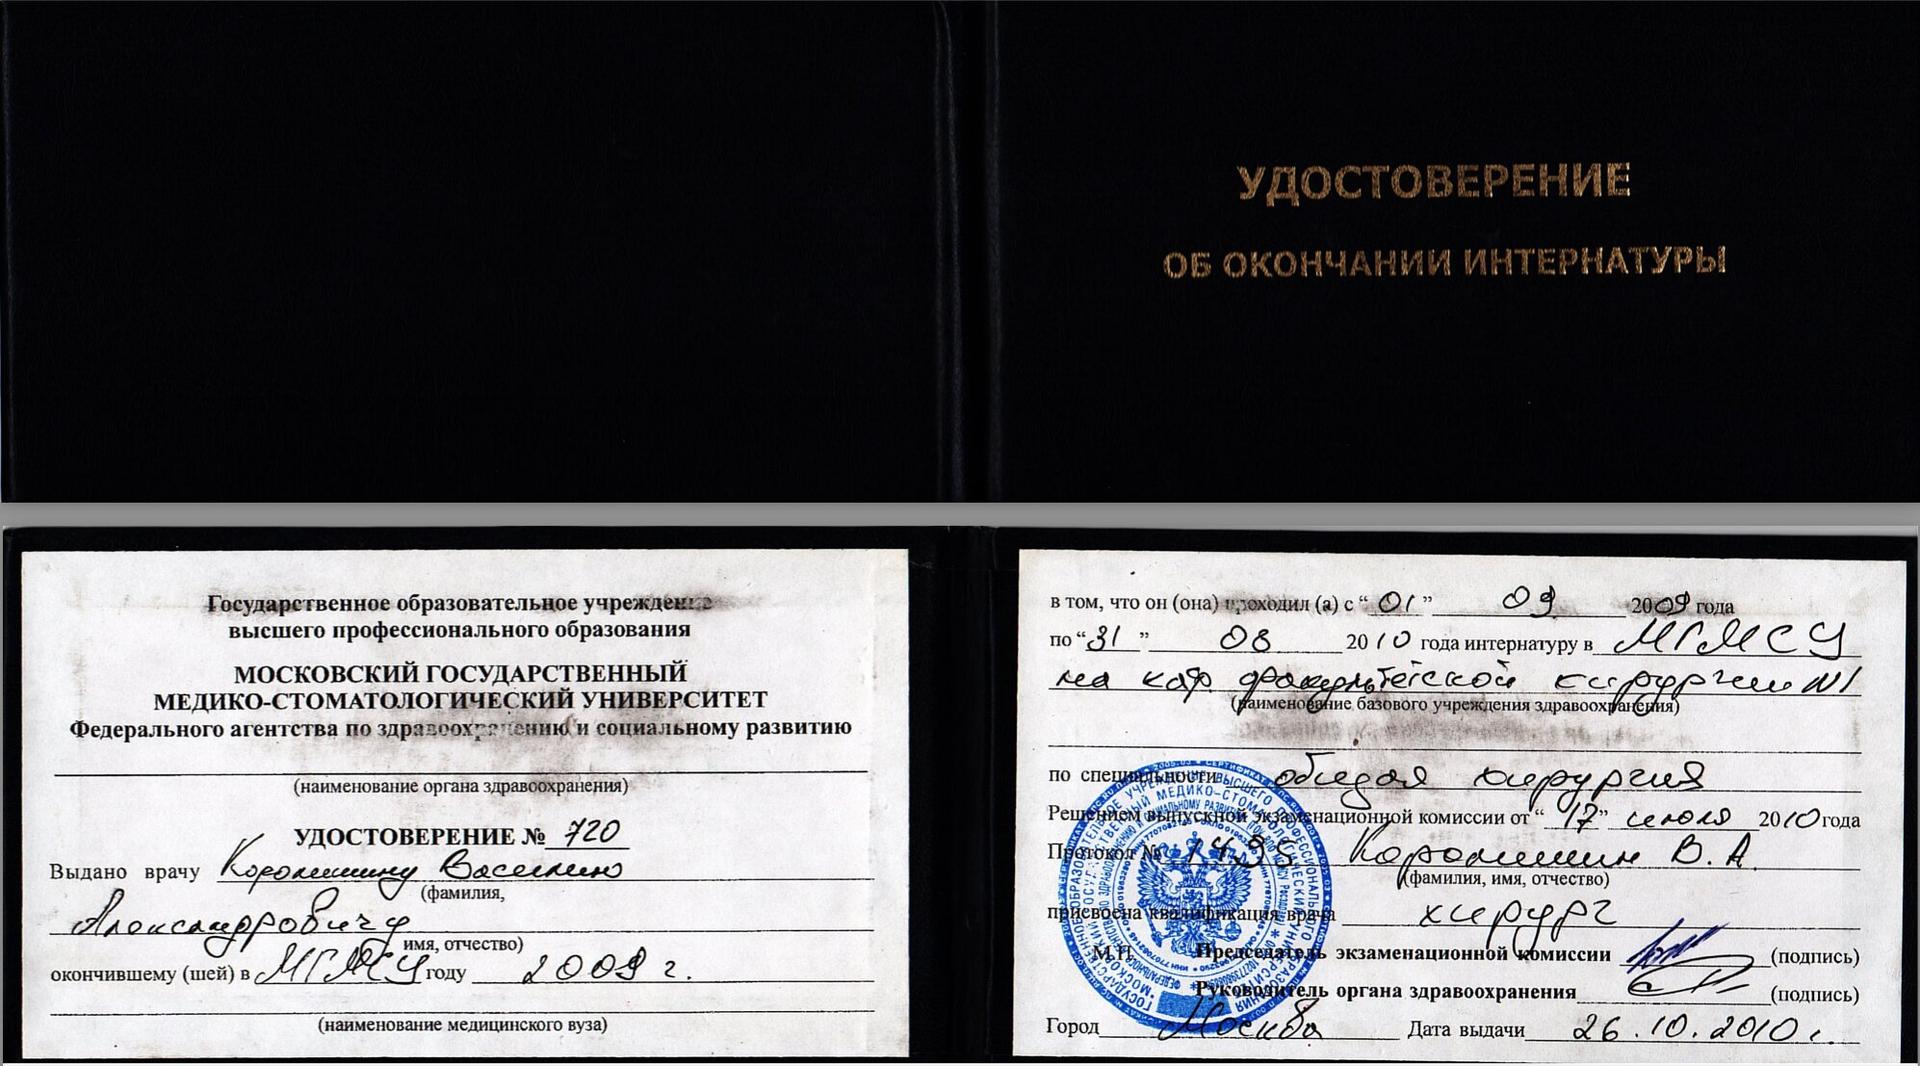 УДОСТОВЕРЕНИЕ
ОБ ОКОНЧАНИИ ИНТЕРНАТУРЫ
Государственное образовательное учреждение
высшего профессионального образования
МОСКОВСКИЙ ГОСУДАРСТВЕННЫЙ
МЕДИКО-СТОМАТОЛОГИЧЕСКИЙ УНИВЕРСИТЕТ
Федерального агентства по здравоохранению и социальному развитию
(наименование органа здравоохранения)
УДОСТОВЕРЕНИЕ № 720
Выдано врачу Королишину Василию
(фамилия,
Александровичу
имя, отчество)
окончившему (шей) в МГМСУ году 2009 г.
(наименование медицинского вуза)
в том, что он (она) проходил (а) с “ 01 ” 09 2009 года
по “ 31 ” 08 2010 года интернатуру в МГМСУ
на каф факультетской хирургии N1
(наименование базового учреждения здравоохранения)
по специальности общая хирургия
Решением выпускной экзаменационной комиссии от “ 17 ” июля 2010 года
Протокол № Королишин В. А.
(фамилия, имя, отчество)
присвоена квалификация врача хирург
М.П. Председатель экзаменационной комиссии (подпись)
Руководитель органа здравоохранения (подпись)
Город Москва Дата выдачи 26.10.2010 г.